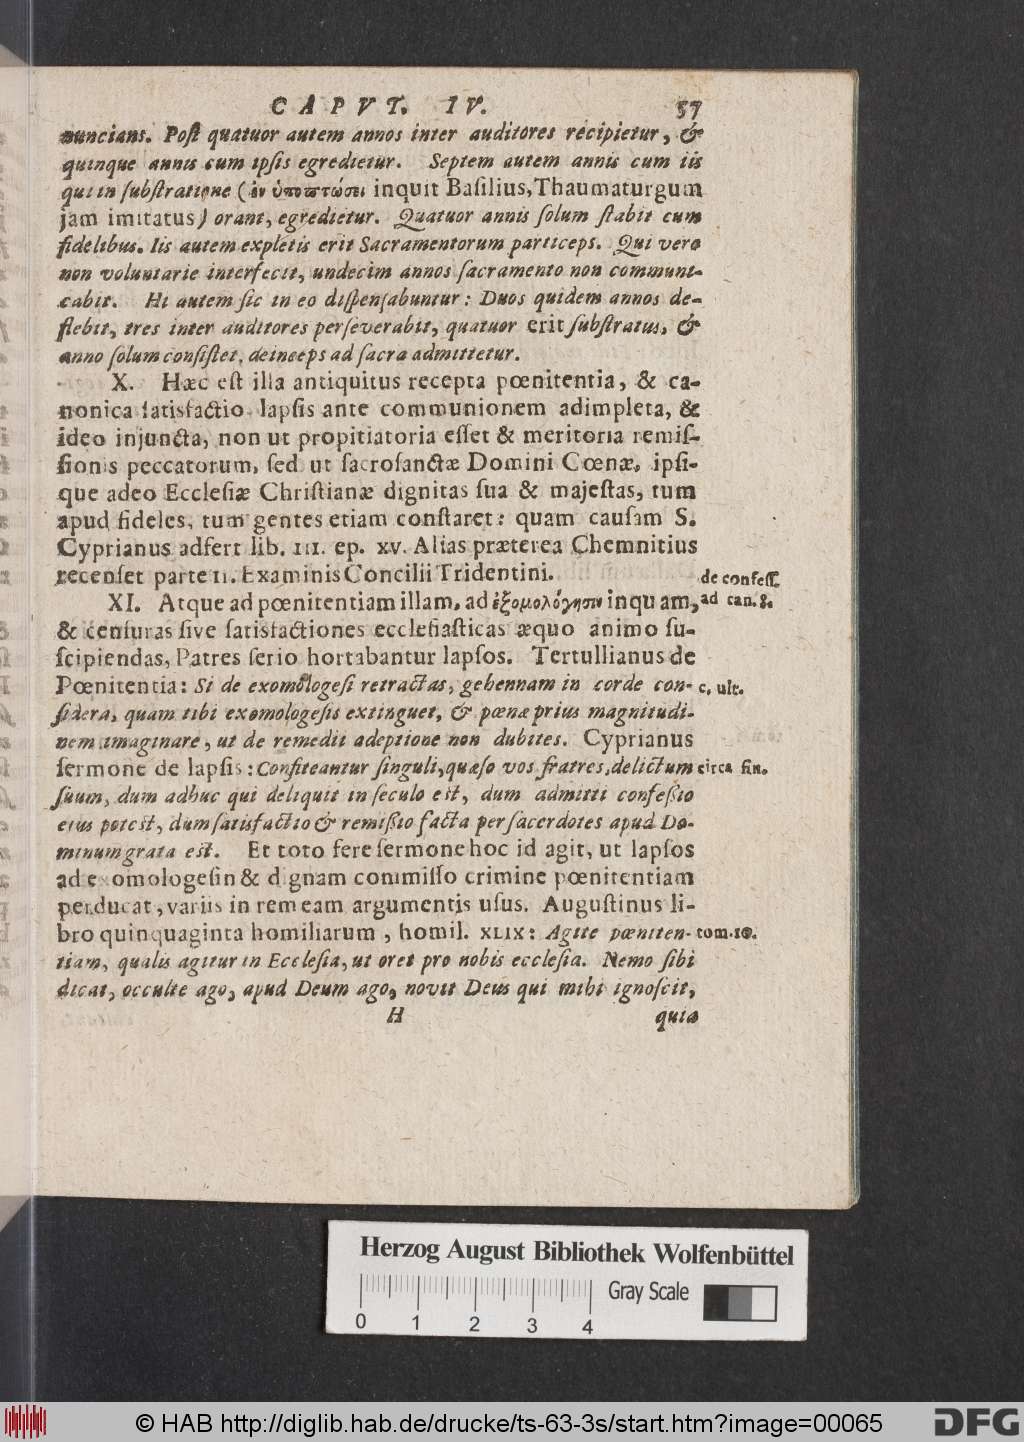 CAPVT. IV. 57
nuncians. Post quatuor autem annos inter auditores recipietur, &
quinque annis cum ipsis egredietur. Septem autem annis cum iis
qui in substratione (ἐν ὑποπτώσει inquit Basilius, Thaumaturgum
jam imitatus) orant, egredietur. Quatuor annis solum stabit cum
fidelibus. Iis autem expletis erit Sacramentorum particeps. Qui vero
non voluntarie interfecit, undecim annos sacramento non communi-
cabit. Hi autem sic in eo dispensabuntur: Duos quidem annos de-
flebit, tres inter auditores perseverabit, quatuor erit substratus, &
anno solum consistet, deinceps ad sacra admittetur.
X. Hæc est illa antiquitus recepta pœnitentia, & ca-
nonica satisfactio lapsis ante communionem adimpleta, &
ideo injuncta, non ut propitiatoria esset & meritoria remis-
sionis peccatorum, sed ut sacrosanctæ Domini Cœnæ, ipsi-
que adeo Ecclesiæ Christianæ dignitas sua & majestas, tum
apud fideles, tum gentes etiam constaret: quam causam S.
Cyprianus adfert lib. III. ep. XV. Alias præterea Chemnitius
recenset parte II. Examinis Concilii Tridentini. de confess.
XI. Atque ad pœnitentiam illam, ad ἐξομολόγησιν inquam, ad can. 8.
& censuras sive satisfactiones ecclesiasticas æquo animo su-
scipiendas, Patres serio hortabantur lapsos. Tertullianus de
Pœnitentia: Si de exomologesi retractas, gehennam in corde con- c. ult.
sidera, quam tibi exomologesis extinguet, & pœnæ prius magnitudi-
nem imaginare, ut de remedii adeptione non dubites. Cyprianus
sermone de lapsis: Confiteantur singuli, quæso vos fratres, delictum circa fin.
suum, dum adhuc qui deliquit in seculo est, dum admitti confessio
eius potest, dum satisfactio & remissio facta per sacerdotes apud Do-
minum grata est. Et toto fere sermone hoc id agit, ut lapsos
ad exomologesin & dignam commisso crimine pœnitentiam
perducat, variis in rem eam argumentis usus. Augustinus li-
bro quinquaginta homiliarum, homil. XLIX: Agite pœniten- tom. 10.
tiam, qualis agitur in Ecclesia, ut oret pro nobis ecclesia. Nemo sibi
dicat, occulte ago, apud Deum ago, novit Deus qui mihi ignoscit,
H quia
Herzog August Bibliothek Wolfenbüttel
Gray Scale
0 1 2 3 4
© HAB http://diglib.hab.de/drucke/ts-63-3s/start.htm?image=00065
DFG